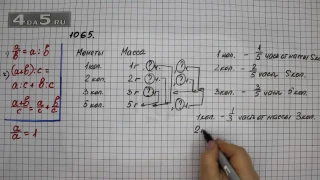 4DA5
R U S . N E T
1065.
a/b = a : b
(ab) : c =
a : c · b
(a+b)/c = a/c + b/c
a/a = 1
Монеты Масса
1 коп. 1 г
2 коп. 2 г
3 коп. 3 г
5 коп. 5 г
1 коп. - 1/5 часть от массы 5 коп.
2 коп. - 2/5 части 5 коп.
3 коп. - 3/5 части 5 коп.
1 коп. - 1/3 часть от массы 3 коп.
2